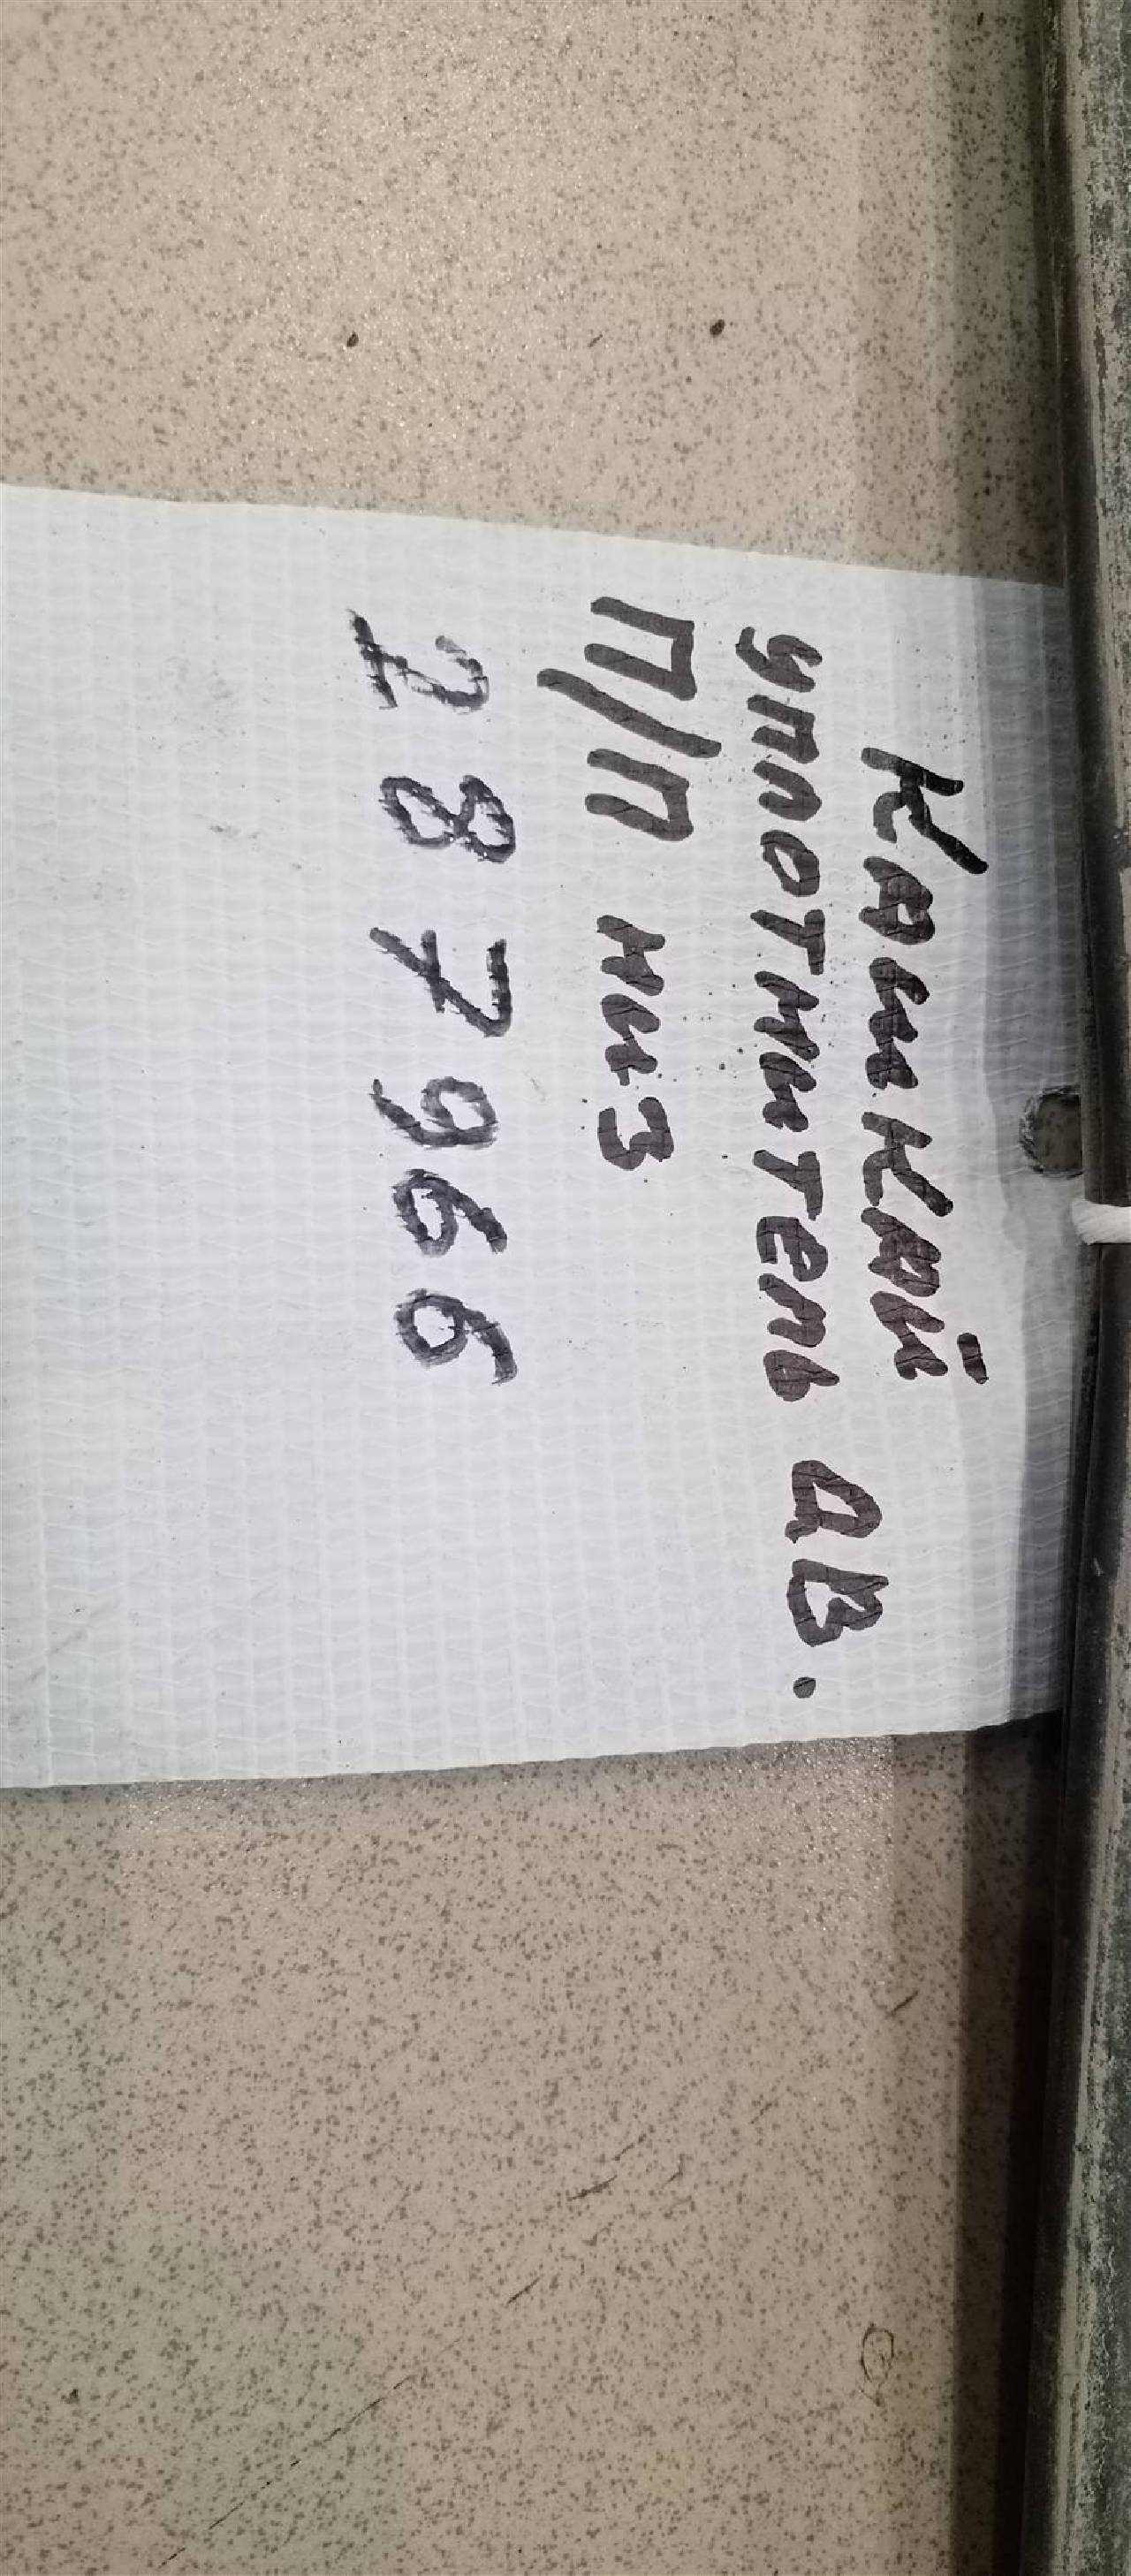 Кашкай
уплотнитель дв.
П/П низ
287966